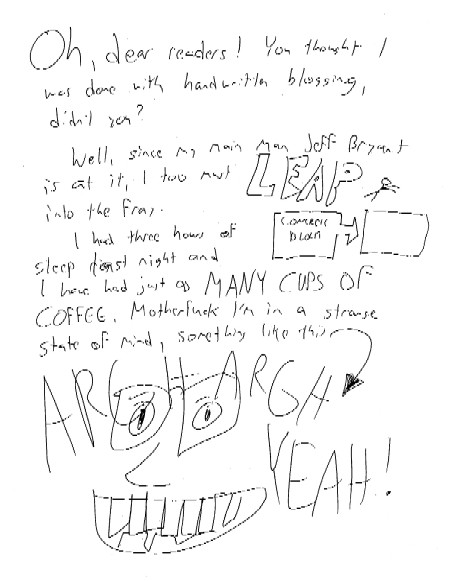 Oh, dear readers! You thought I
was done with handwritten blogging,
didn't you?
Well, since my main man Jeff Bryant
is at it, I too must LEAP
into the fray.
CONCRETE
BLOCK
I had three hours of
sleep last night and
I have had just as MANY CUPS OF
COFFEE. Motherfuck I'm in a strange
state of mind, something like this
ARGH ARGH
YEAH!